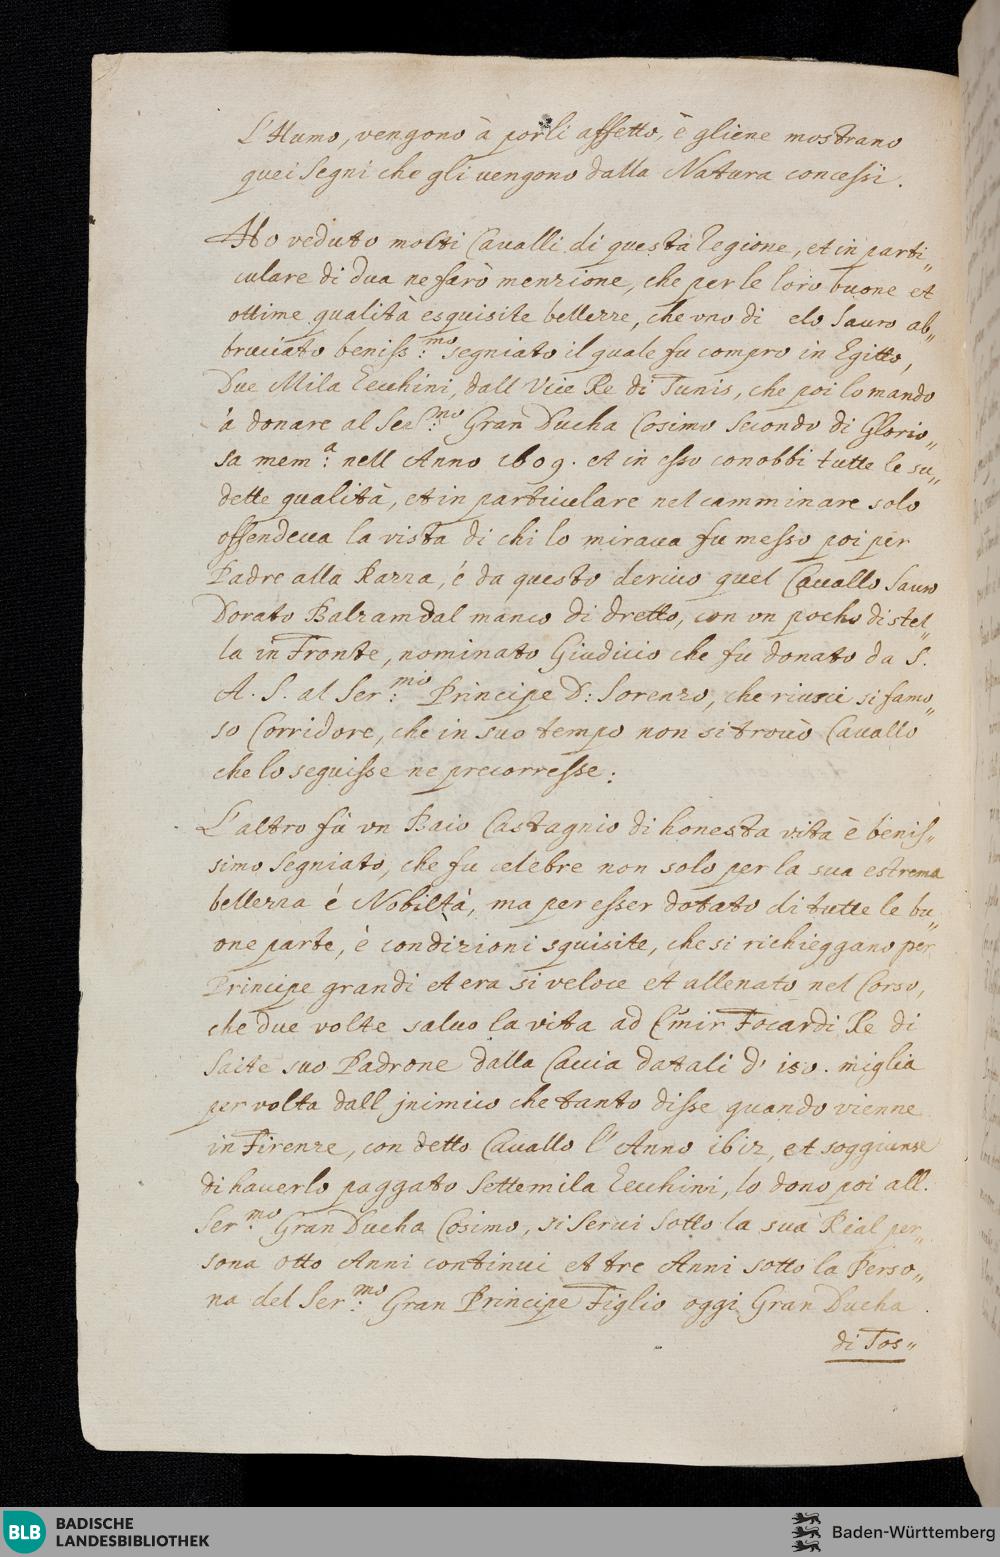 L'Humo, vengono à porli affetto, è gliene mostrano
quei Segni che gli vengono dalla Natura concessi.
Ho veduto molti Cavalli di questa Regione, et in parti„
culare di dua ne farò menzione, che per le loro buone et
ottime qualità esquisite bellezze, che vno di elo Sauro ab„
bruciato beniss:mo segniato il quale fu compro in Egitto,
Due Mila Zecchini, dall Vice Re di Tunis, che poi lo mando
à donare al Ser:mo Gran Ducha Cosimo Secondo di Glorio„
sa mem:a nell Anno 1609. et in esso conobbi tutte le su„
dette qualità, et in particulare nel camminare solo
offendeua la vista di chi lo miraua fu messo poi per
Padre alla Razza, é da questo deriuo quel Cauallo Sauro
Dorato Balzam dal manco di dretto, con vn pocho di stel„
la in Fronte, nominato Giudicio che fu donato da S.
A. S. al Ser:mio Principe D: Lorenzo, che riusci si famo„
so Corridore, che in suo tempo non si trouò Cauallo
che lo seguisse ne precorresse:
L'altro fù vn Baio Castagnio di honesta vita è benis„
simo Segniato, che fu celebre non solo per la sua estrema
bellezza é Nobiltà, ma per esser dotato di tutte le bu„
one parte, è condizioni squisite, che si richieggano per
Principe grandi et era si veloce et allenato nel Corso,
che due volte saluo la vita ad Emir Focardi Re di
Saite suo Padrone dalla Caccia datali d' 150. miglia
per volta dall jnimico che tanto disse quando vienne
in Firenze, con detto Cauallo l'Anno 1612, et soggiunse
di hauerlo paggato Settemila Zecchini, lo dono poi all.
Ser:mo Gran Ducha Cosimo, si Serui Sotto la sua Reial per„
sona otto Anni continui et tre Anni sotto la Perso„
na del Ser:mo Gran Principe Figlio oggi Gran Ducha
di Tos„
BLB
BADISCHE
LANDESBIBLIOTHEK
Baden-Württemberg